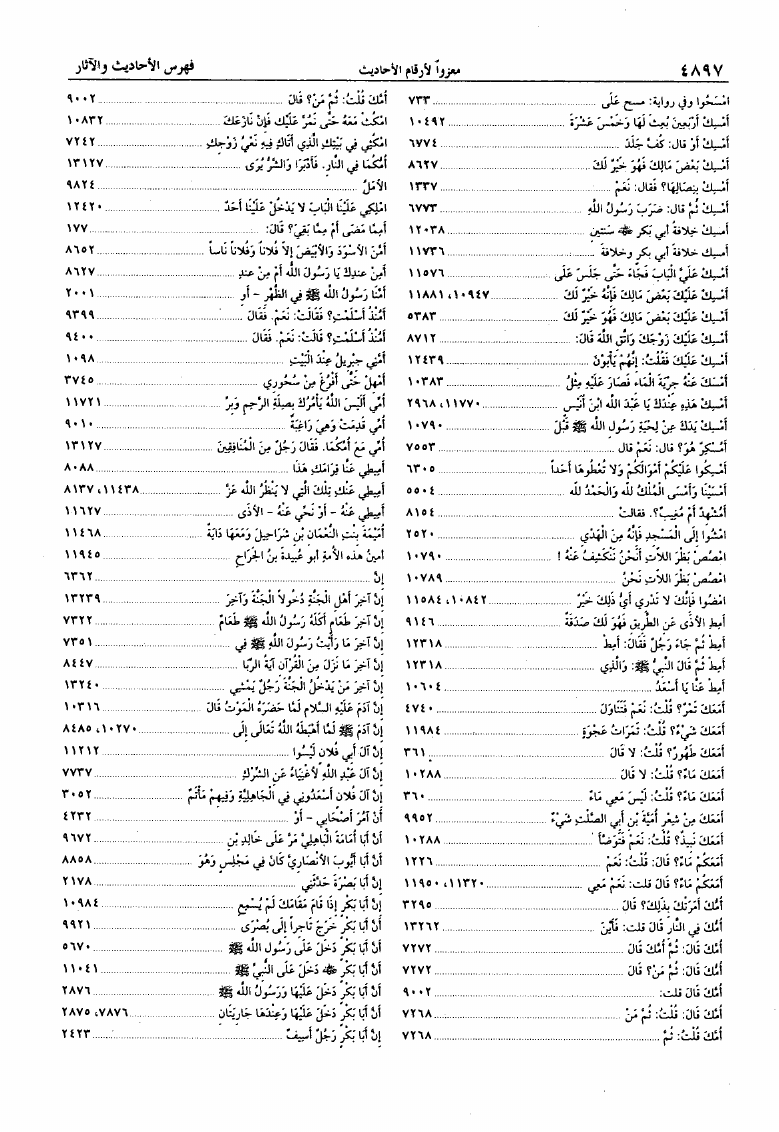 ٤٨٩٧ معزواً لأرقام الأحاديث فهرس الأحاديث والآثار
امْسَحُوا وفي رواية: مسح عَلَى ... ٧٣٣
أَمْسِكْ أَرْبَعِينَ بُعِثَ لَهَا وَخَمْسَ عَشْرَةَ ... ١٠٤٩٢
أَمْسِكْ أَوْ قال: كُفَّ جَلَدَ ... ٦٧٧٤
أَمْسِكْ بَعْضَ مَالِكَ فَهُوَ خَيْرٌ لَكَ ... ٨٦٢٧
أَمْسِكْ بِنِصَالِهَا؟ فقال: نَعَمْ ... ١٣٣٧
أَمْسِكْ ثُمَّ قال: ضَرَبَ رَسُولُ اللَّهِ ... ٦٧٧٣
أمسك خلافةَ أبي بكر ﷺ سنتين ... ١٢٠٣٨
أمسك خلافةَ أبي بكرٍ وخلافةَ ... ١١٧٣٦
أَمْسِكْ عَلَيَّ الْبَابَ فَجَاءَ حَتَّى جَلَسَ عَلَى ... ١١٥٧٦
أَمْسِكْ عَلَيْكَ بَعْضَ مَالِكَ فَإِنَّهُ خَيْرٌ لَكَ ... ١٠٩٤٧، ١١٨٨١
أَمْسِكْ عَلَيْكَ بَعْضَ مَالِكَ فَهُوَ خَيْرٌ لَكَ ... ٥٣٨٣
أَمْسِكْ عَلَيْكَ زَوْجَكَ وَاتَّقِ اللَّهَ قَالَ: ... ٨٧١٢
أَمْسِكْ عَلَيْكَ فَقُلْتُ: إِنَّهُمْ يَأْبَوْنَ ... ١٢٤٣٩
أَمْسَكَ عَنْهُ جِرْيَةَ الْمَاءِ فَصَارَ عَلَيْهِ مِثْلُ ... ١٠٣٨٣
أَمْسِكْ هَذِهِ عِنْدَكَ يَا عَبْدَ اللَّه ابنَ أُنَيْسٍ ... ١١٧٧٠، ٢٩٦٨
أَمْسِكْ يَدَكَ عَنْ لِحْيَةِ رَسُولِ اللَّهِ ﷺ قَبْلَ ... ١٠٧٩٠
أَمُسْكِرٌ هُوَ؟ قال: نَعَمْ قال ... ٧٥٥٣
أَمْسِكُوا عَلَيْكُمْ أَمْوَالَكُمْ وَلَا تُعْطُوهَا أَحَداً ... ٦٣٠٥
أَمْسَيْنَا وَأَمْسَى الْمُلْكُ لله وَالْحَمْدُ لله ... ٥٥٠٤
أَمُشْهِدٌ أَمْ مُغِيبٌ؟. فقالت ... ٨١٥٤
امْشُوا إِلَى الْمَسْجِدِ فَإِنَّهُ مِنَ الْهَدْيِ ... ٢٥٢٠
امْصُصْ بَظْرَ اللَّاتِ أَنَحْنُ نَنْكَشِفُ عَنْهُ ! ... ١٠٧٩٠
امْصُصْ بَظْرَ اللَّاتِ نَحْنُ ... ١٠٧٨٩
امْضُوا فَإِنَّكَ لَا تَدْرِي أَيُّ ذَلِكَ خَيْرٌ ... ١٠٨٤٢، ١١٥٨٤
أمِطِ الأذى عَنِ الطَّرِيقِ فَهُوَ لَكَ صَدَقَةٌ ... ٩١٤٦
أمِطْ ثُمَّ جَاءَ رَجُلٌ فَقَالَ: أَمِطْ ... ١٢٣١٨
أمِطْ ثُمَّ قَالَ النَّبِيُّ ﷺ: وَالَّذِي ... ١٢٣١٨
أمِطْ عَنَّا يَا أَسْعَدُ ... ١٠٦٠٤
أَمَعَكَ تَمْرٌ؟ قُلْتُ: نَعَمْ فَتَنَاوَلَ ... ٤٧٤٠
أَمَعَكَ شَيْءٌ؟ قُلْتُ: تَمَرَاتُ عَجْوَةٍ ... ١١٩٨٤
أَمَعَكَ طَهُورٌ؟ قُلْتُ: لَا قَالَ ... ٣٦١
أَمَعَكَ مَاءٌ؟ قُلْتُ: لا قَالَ ... ١٠٢٨٨
أَمَعَكَ مَاءٌ؟ قُلْتُ: لَيْسَ مَعِي مَاءٌ ... ٣٦٠
أَمَعَكَ مِنْ شِعْرِ أُمَيَّةَ بْنِ أَبِي الصَّلْتِ شَيْءٌ ... ٩٩٥٢
أَمَعَكَ نَبِيذٌ؟ قُلْتُ: نَعَمْ فَتَوَضَّأَ ... ١٠٢٨٨
أَمَعَكُمْ مَاءٌ؟ قَالَ: قُلْتُ: نَعَمْ ... ١٢٢٦
أَمَعَكُمْ مَاءٌ؟ قَالَ قلت: نَعَمْ مَعِي ... ١١٣٢٠، ١١٩٥٠
أُمُّكَ أَمَرَتْكَ بِذَلِكَ؟ قَالَ ... ٣٢٩٥
أُمُّكَ فِي النَّارِ قَالَ قلت: فَأَيْنَ ... ١٣٢٦٢
أُمُّكَ قَالَ: ثُمَّ أُمُّكَ قَالَ ... ٧٢٧٢
أُمُّكَ قَالَ: ثُمَّ مَنْ؟ قَالَ ... ٧٢٧٢
أُمُّكَ قَالَ قلت: ... ٩٠٠٢
أُمُّكَ قَالَ: قُلْتُ: ثُمَّ مَنْ ... ٧٢٦٨
أُمُّكَ قُلْتُ: ثُمَّ ... ٧٢٦٨
أُمُّكَ قُلْتُ: ثُمَّ مَنْ؟ قَالَ ... ٩٠٠٢
امْكُثْ مَعَهُ حَتَّى نَمُرَّ عَلَيْكَ فَإِنْ نَازَعَكَ ... ١٠٨٣٢
امْكُثِي فِي بَيْتِكِ الَّذِي أَتَاكِ فِيهِ نَعْيُ زَوْجِكِ ... ٧٢٤٢
أُمُّكُمَا فِي النَّارِ. فَأَدْبَرَا وَالشَّرُّ يُرَى ... ١٣١٢٧
الأَمَلُ ... ٩٨٢٤
امْلِكِي عَلَيْنَا الْبَابَ لَا يَدْخُلْ عَلَيْنَا أَحَدٌ ... ١٢٤٢٠
أَمِمَّا مَضَى أَمْ مِمَّا بَقِيَ؟ قَالَ: ... ١٧٧
أَمَّنَ الأَسْوَدَ وَالأَبْيَضَ إِلَّا فُلَاناً وَفُلَاناً نَاساً ... ٨٦٥٢
أَمِنْ عندِكَ يَا رَسُولَ اللَّه أَمْ مِنْ عندِ ... ٨٦٢٧
أَمَّنَا رَسُولُ اللَّهِ ﷺ في الظُّهْرِ - أَو ... ٢٠٠١
أَمُنْذُ أَسْلَمْتِ؟ فَقَالَتْ: نَعَمْ. فَقَالَ ... ٩٣٩٩
أَمُنْذُ أَسْلَمْتِ؟ قَالَتْ: نَعَمْ. فَقَالَ ... ٩٤٠٠
أَمَّنِي جِبْرِيلُ عِنْدَ الْبَيْتِ ... ١٠٩٨
أَمْهِلْ حَتَّى أَفْرُغَ مِنْ سُحُورِي ... ٣٧٤٥
أُمِّي أَلَيْسَ اللَّهُ يَأْمُرُكَ بِصِلَةِ الرَّحِمِ وَبِرِّ ... ١١٧٢١
أُمِّي قَدِمَتْ وَهِيَ رَاغِبَةٌ ... ٩٠١٠
أُمِّي مَعَ أُمِّكُمَا. فَقَالَ رَجُلٌ مِنَ الْمُنَافِقِينَ ... ١٣١٢٧
أَمِيطِي عَنَّا قِرَامَكِ هَذَا ... ٨٠٨٨
أَمِيطِي عَنْكِ تِلْكَ الَّتِي لَا يَنْظُرُ اللَّه عَزَّ ... ١١٤٣٨، ٨١٣٧
أَمِيطِي عَنْهُ - أَوْ نَحِّي عَنْهُ - الأَذَى ... ١١٦٢٧
أُمَيْمَةُ بِنْتِ النُّعْمَانِ بْنِ شَرَاحِيلَ وَمَعَهَا دَايَةٌ ... ١١٤٦٨
أمينُ هذه الأُمةِ أبو عُبيدةَ بنُ الجَراحِ ... ١١٩٤٥
إِنْ ... ٦٣٦٢
إِنَّ آخِرَ أَهْلِ الْجَنَّةِ دُخُولاً الْجَنَّةَ وَآخِرَ ... ١٣٢٣٩
إِنَّ آخِرَ طَعَامٍ أَكَلَهُ رَسُولُ اللَّهِ ﷺ طَعَامٌ ... ٧٣٢٢
إِنَّ آخِرَ مَا رَأَيْتُ رَسُولَ اللَّهِ ﷺ فِي ... ٧٣٥١
إِنَّ آخِرَ مَا نَزَلَ مِنَ الْقُرْآنِ آيَةُ الرِّبَا ... ٨٤٤٧
إِنَّ آخِرَ مَنْ يَدْخُلُ الْجَنَّةَ رَجُلٌ يَمْشِي ... ١٣٢٤٠
إِنَّ آدَمَ عَلَيْهِ السَّلام لَمَّا حَضَرَهُ الْمَوْتُ قَالَ ... ١٠٣١٦
إِنَّ آدَمَ ﷺ لَمَّا أَهْبَطَهُ اللَّهُ تَعَالَى إِلَى ... ١٠٢٧٠، ٨٤٨٥
إِنَّ آلَ أَبِي فُلَانٍ لَيْسُوا ... ١١٢١٢
إِنَّ آلَ عَبْدِ اللَّهِ لأَغْنِيَاءُ عَنِ الشِّرْكِ ... ٧٧٣٧
إِنَّ آلَ فُلَانٍ أَسْعَدُونِي فِي الْجَاهِلِيَّةِ وَفِيهِمْ مَأْتَمٌ ... ٣٠٥٢
أَنْ آمُرَ أَصْحَابِي - أَوْ ... ٤٢٣٢
أَنَّ أَبَا أُمَامَةَ الْبَاهِلِيَّ مَرَّ عَلَى خَالِدِ بْنِ ... ٩٦٧٢
أَنَّ أَبَا أَيُّوبَ الأَنْصَارِيَّ كَانَ فِي مَجْلِسٍ وَهُوَ ... ٨٨٥٨
إِنَّ أَبَا بَصْرَةَ حَدَّثَنِي ... ٢١٧٨
إِنَّ أَبَا بَكْرٍ إِذَا قَامَ مَقَامَكَ لَمْ يُسْمِعِ ... ١٠٩٨٤
أَنَّ أَبَا بَكْرٍ خَرَجَ تَاجِراً إِلَى بُصْرَى ... ٩٩٢١
أَنَّ أَبَا بَكْرٍ دَخَلَ عَلَى رَسُولِ اللَّه ﷺ ... ٥٦٧٠
أَنَّ أَبَا بَكْرٍ ﷺ دَخَلَ عَلَى النَّبِيِّ ﷺ ... ١١٠٤١
أَنَّ أَبَا بَكْرٍ دَخَلَ عَلَيْهَا وَرَسُولُ اللَّهِ ﷺ ... ٢٨٧٦
أَنَّ أَبَا بَكْرٍ دَخَلَ عَلَيْهَا وَعِنْدَهَا جَارِيَتَانِ ... ٧٨٧٦، ٢٨٧٥
إِنَّ أَبَا بَكْرٍ رَجُلٌ أَسِيفٌ ... ٢٤٢٣